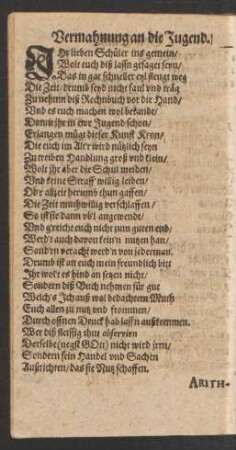 Vermahnung an die Jugend.
IHr lieben Schüler ins gemein/
Wolt euch diß lassn gesaget seyn/
Das in gar schneller eyl steigt weg
Die Zeit/ drumb seyd nicht faul vnd träg
Zu nehmn diß Rechnbuch vor die Hand/
Vnd es euch machen wol bekande/
Damit jhr in ewr Jugend schon/
Erlangen mügt dieser Kunst Kron/
Die euch im Alter wird nützlich seyn
Zu treiben Handlung groß vnd klein/
Wolt jhr aber die Schul meiden/
Vnd keine Straff willig leiden/
Od'r allzeit herumb thun gaffen/
Die Zeit muthwillig verschlaffen/
So ist sie dann vb'l angewendt/
Vnd g'reicht euch nicht zum guten end/
Werd't auch davon kein'n nutzen han/
Sond'rn veracht werd'n von jederman.
Drumb ist an euch mein freundlich bitt
Ihr wol't es hind an setzen nicht/
Sondern diß Buch nehmen für gut
Welch's Ich auß wol bedachtem Muth
Euch allen zu nutz vnd frommen/
Durch offnen Druck hab lass'n außkommen.
Wer diß fleissig thut observirn
Derselbe (negst GOtt) nicht wird jrrn/
Sondern sein Handel vnd Sachen
Außrichten/ das sie Nutz schaffen.
ARITH-